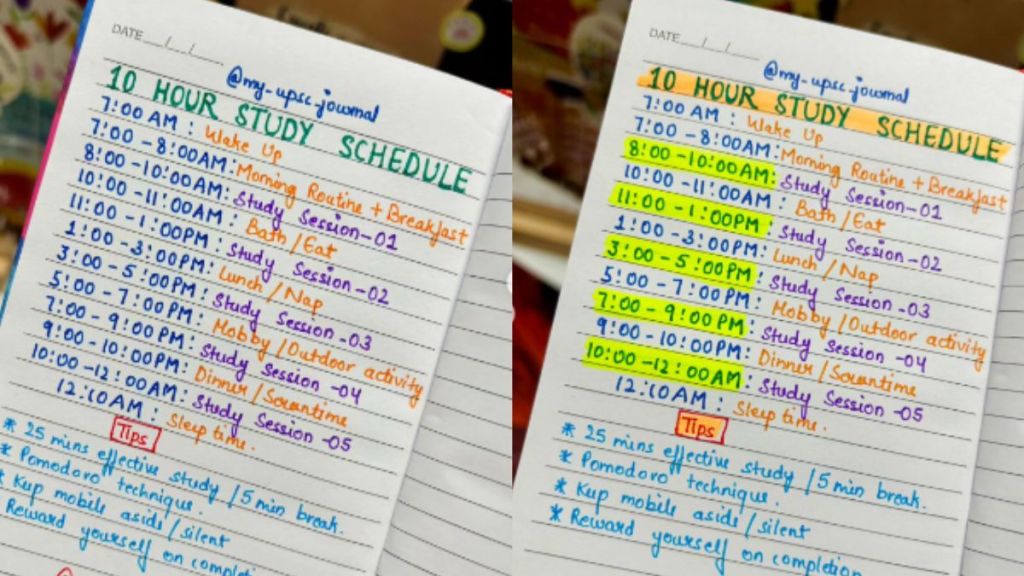 DATE__/__/__
@my-upsc-journal
10 HOUR STUDY SCHEDULE
7:00 AM : Wake Up
7:00 - 8:00AM: Morning Routine + Breakfast
8:00 - 10:00AM: Study Session-01
10:00 - 11:00AM : Bath / Eat
11:00 - 1:00PM : Study Session-02
1:00 - 3:00PM: Lunch / Nap
3:00 - 5:00PM : Study Session-03
5:00 - 7:00PM : Hobby / Outdoor activity
7:00 - 9:00PM : Study Session -04
9:00 - 10:00PM: Dinner / Scrantime
10:00 - 12:00AM : Study Session -05
12:10AM : Sleep time.
Tips
* 25 mins effective study / 5 min break.
* Pomodoro technique.
* Kup mobile aside / silent
Reward yourself on completi
DATE__/__/__
@my-upsc-journal
10 HOUR STUDY SCHEDULE
7:00 AM : Wake Up
7:00 - 8:00AM: Morning Routine + Breakfast
8:00 - 10:00AM: Study Session-01
10:00 - 11:00AM : Bath / Eat
11:00 - 1:00PM : Study Session-02
1:00 - 3:00PM: Lunch / Nap
3:00 - 5:00PM : Study Session -03
5:00 - 7:00PM : Hobby / Outdoor activity
7:00 - 9:00PM : Study Session -04
9:00 - 10:00PM: Dinner / Scrantime
10:00 - 12:00AM : Study Session -05
12:10AM : Sleep time.
Tips
* 25 mins effective study / 5 min break.
* Pomodoro technique.
* Kup mobile aside / silent
* Reward yourself on completion